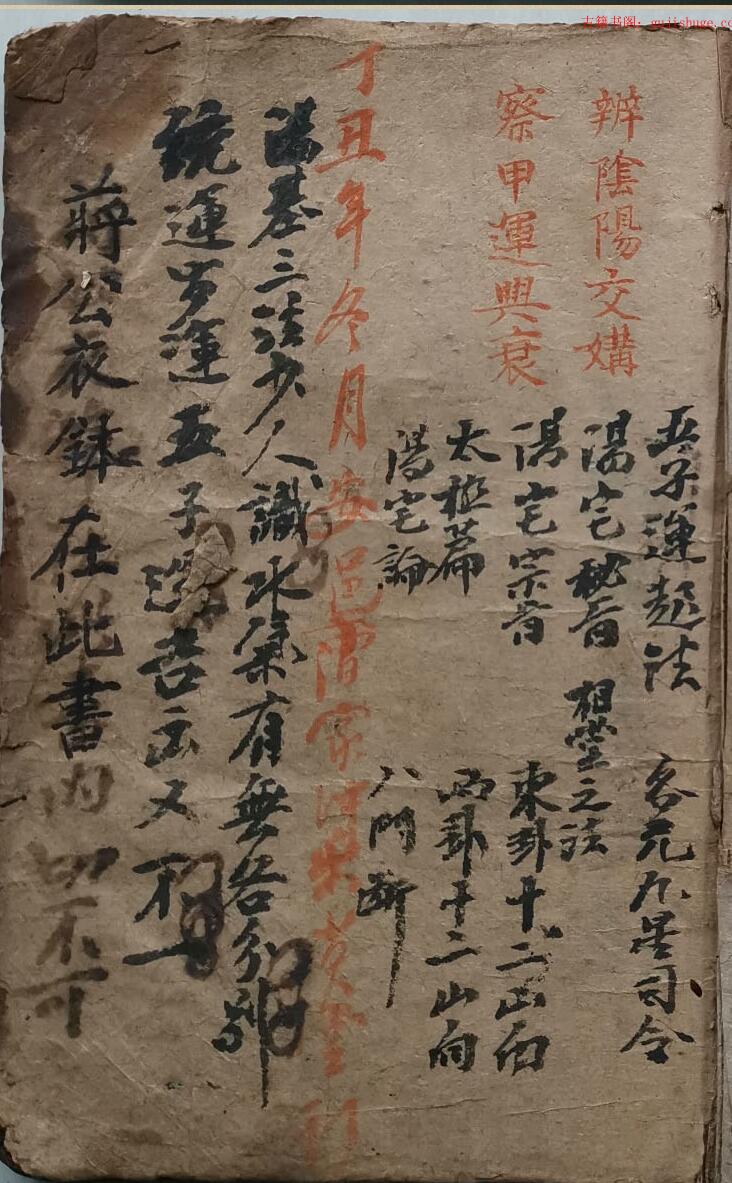 古籍书阁：gujishuge.co
五子運起法 各元九星司令
辨陰陽交媾
陽宅秘旨 相堂之法
察甲運興衰
陽宅宗旨 東卦十二山向
太極篇 西卦十二山向
陽宅論 八門斷
丁丑年冬月安邑
陽基三法少人識水氣有無各分別
統運歲運五子運吉凶又不一
蔣公衣鉢在此書內切不可